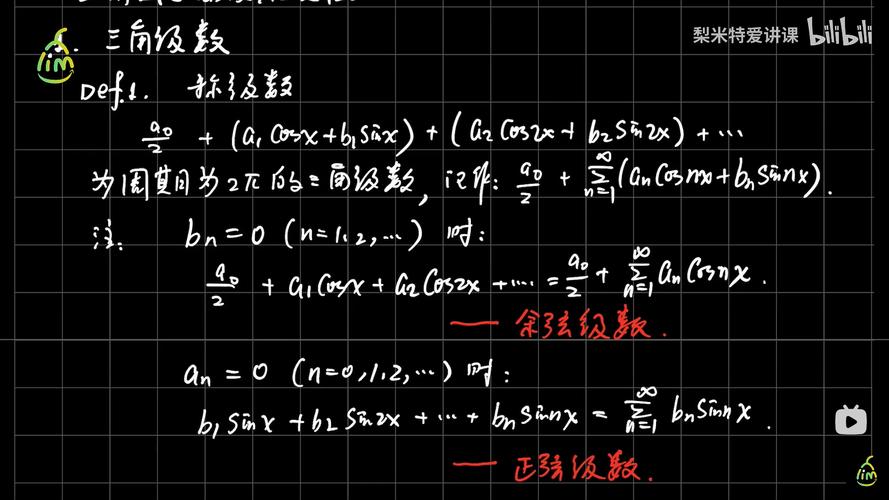 梨米特爱讲课 bilibili
lim
1. 三角级数
Def.1. 称级数
a₀/2 + (a₁cosx+b₁sinx) + (a₂cos2x+b₂sin2x) + ⋯
为周期为2π的三角级数, 记作: a₀/2 + ∑_{n=1}^{∞}(aₙcosnx+bₙsinnx).
注: bₙ=0 (n=1,2,⋯) 时:
a₀/2 + a₁cosx + a₂cos2x + ⋯ = a₀/2 + ∑_{n=1}^{∞} aₙcosnx.
—— 余弦级数.
aₙ = 0 (n=0,1,2,⋯) 时:
b₁sinx + b₂sin2x + ⋯ + bₙsinnx = ∑_{n=1}^{∞} bₙsinnx.
—— 正弦级数.
lim